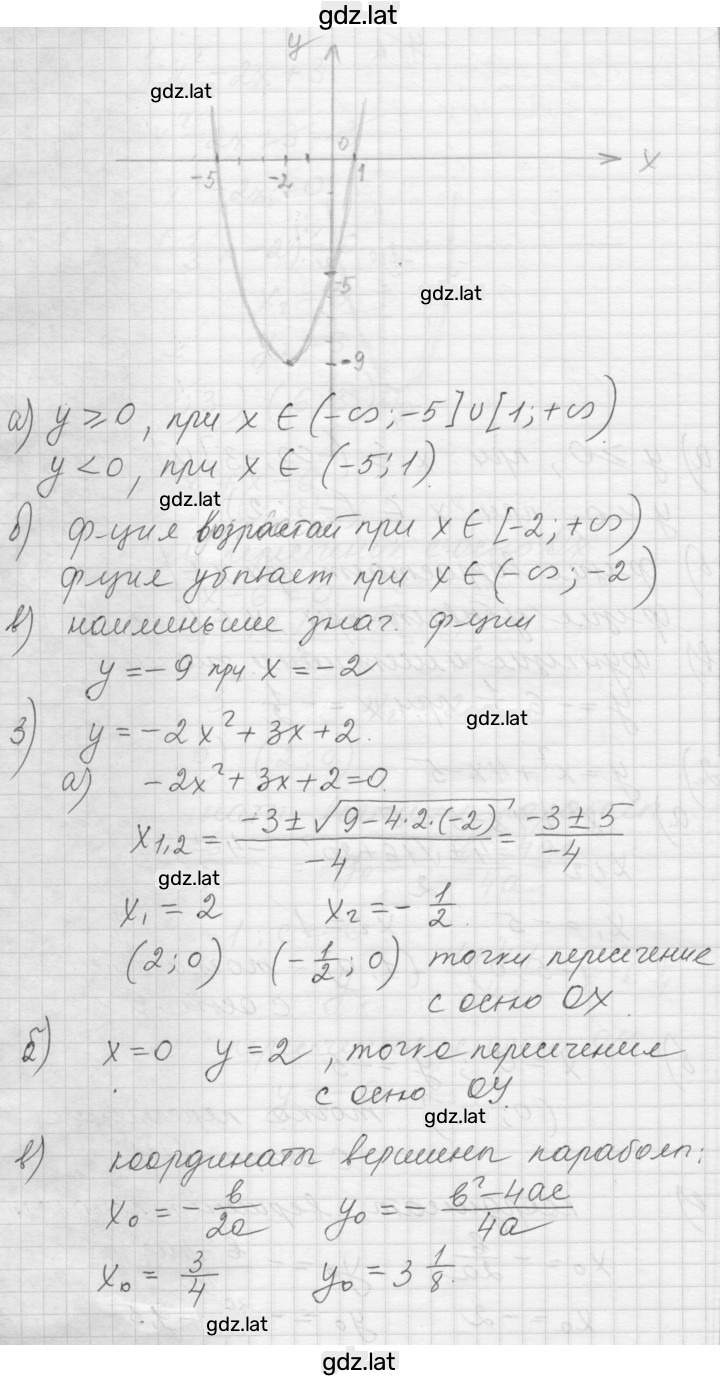 gdz.lat
y
gdz.lat
0
x
-5 -2 1
-5
gdz.lat
-9
а) y ⩾ 0, при x ∈ (-∞; -5] ∪ [1; +∞)
y < 0, при x ∈ (-5; 1)
gdz.lat
б) ф-ция возрастай при x ∈ [-2; +∞)
фция убывает при x ∈ (-∞; -2)
в) наименьше знач. фции
y = -9 при x = -2
gdz.lat
3) y = -2x² + 3x + 2.
а) -2x² + 3x + 2 = 0.
x₁,₂ = (-3 ± √(9 - 4·2·(-2)))/(-4) = (-3 ± 5)/(-4)
gdz.lat
x₁ = 2 x₂ = -1/2.
(2; 0) (-1/2; 0) точки пересечение
с осью OX
б) x = 0 y = 2, точка пересечения
с осью OY.
gdz.lat
в) координаты вершины параболы:
x₀ = -в/2a y₀ = -(в² - 4ac)/4a
x₀ = 3/4 y₀ = 3 1/8.
gdz.lat
gdz.lat